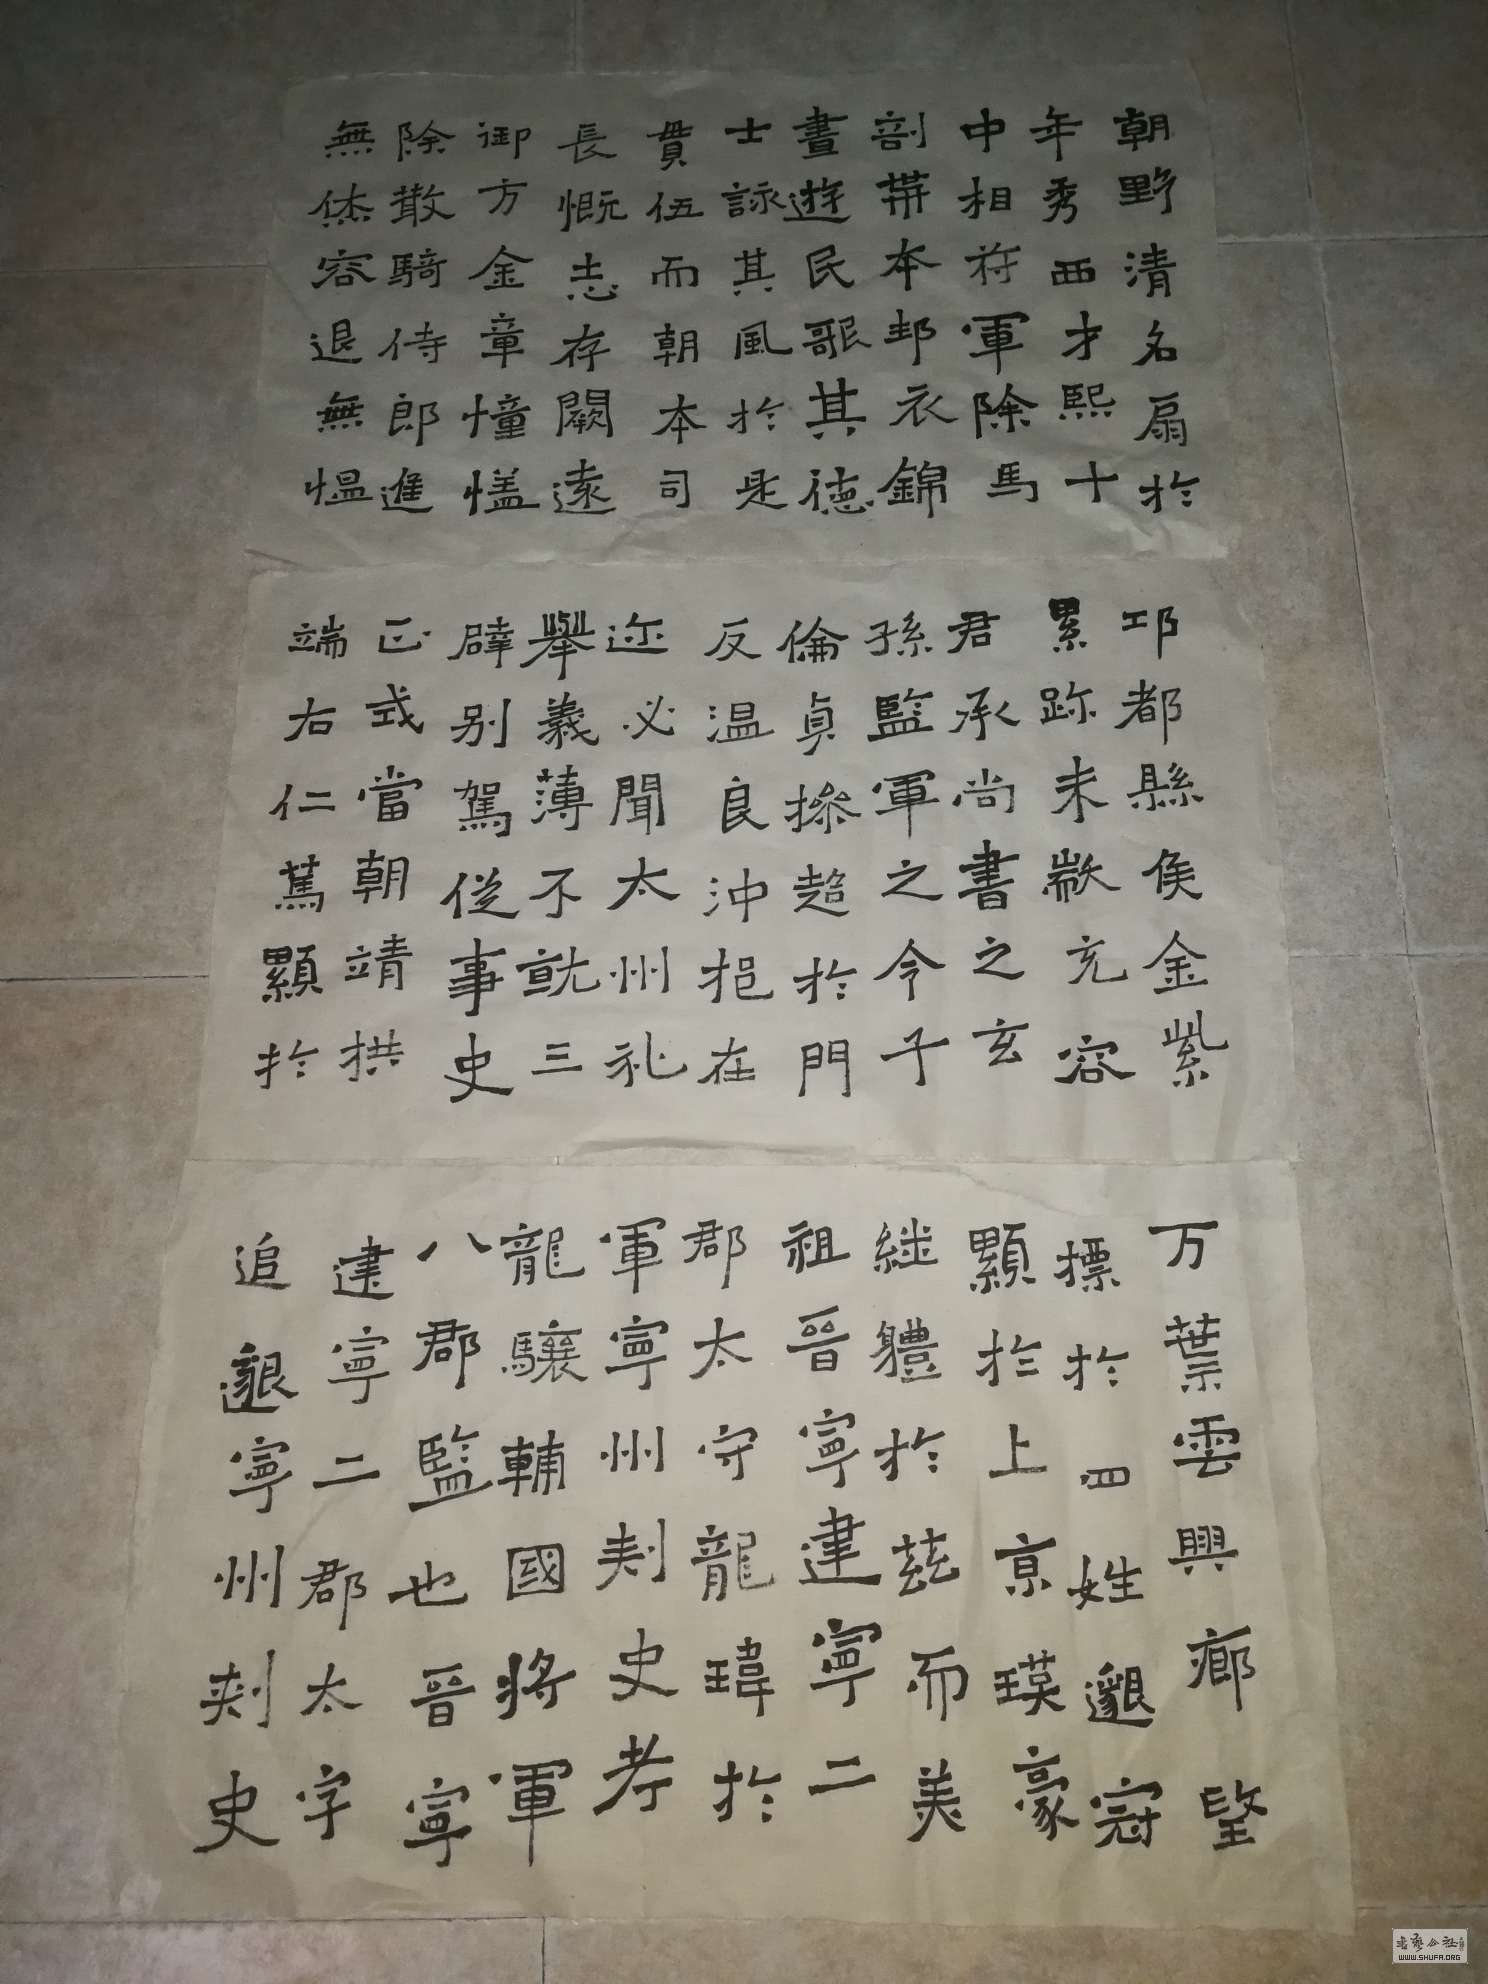 朝野清名扇於
年秀西才熙十
中相符軍除馬
剖帶本邦衣錦
晝遊民歌其德
士詠其風於是
貫伍而朝本司
長慨志存闕遠
御方金章憧
除散騎侍郎進
無烋容退無愠
邛都縣侯金紫
累跡朱黻充容
君承尚書之玄
孫監軍之令子
倫貞操超於門
反温良沖挹在
迩必聞太州礼
舉義薄不就三
辟别駕從事史
正式當朝靖拱
端右仁篤顯於
万葉雲興廊望
標於四姓邈冠
顯於上京瑛豪
継體於茲而美
祖晉寧建寧二
郡太守龍瑋於
軍寧州刺史考
龍驤輔國將軍
八郡監也晉寧
建寧二郡太字
追邈寧州刺史
WWW.SHUFA.ORG